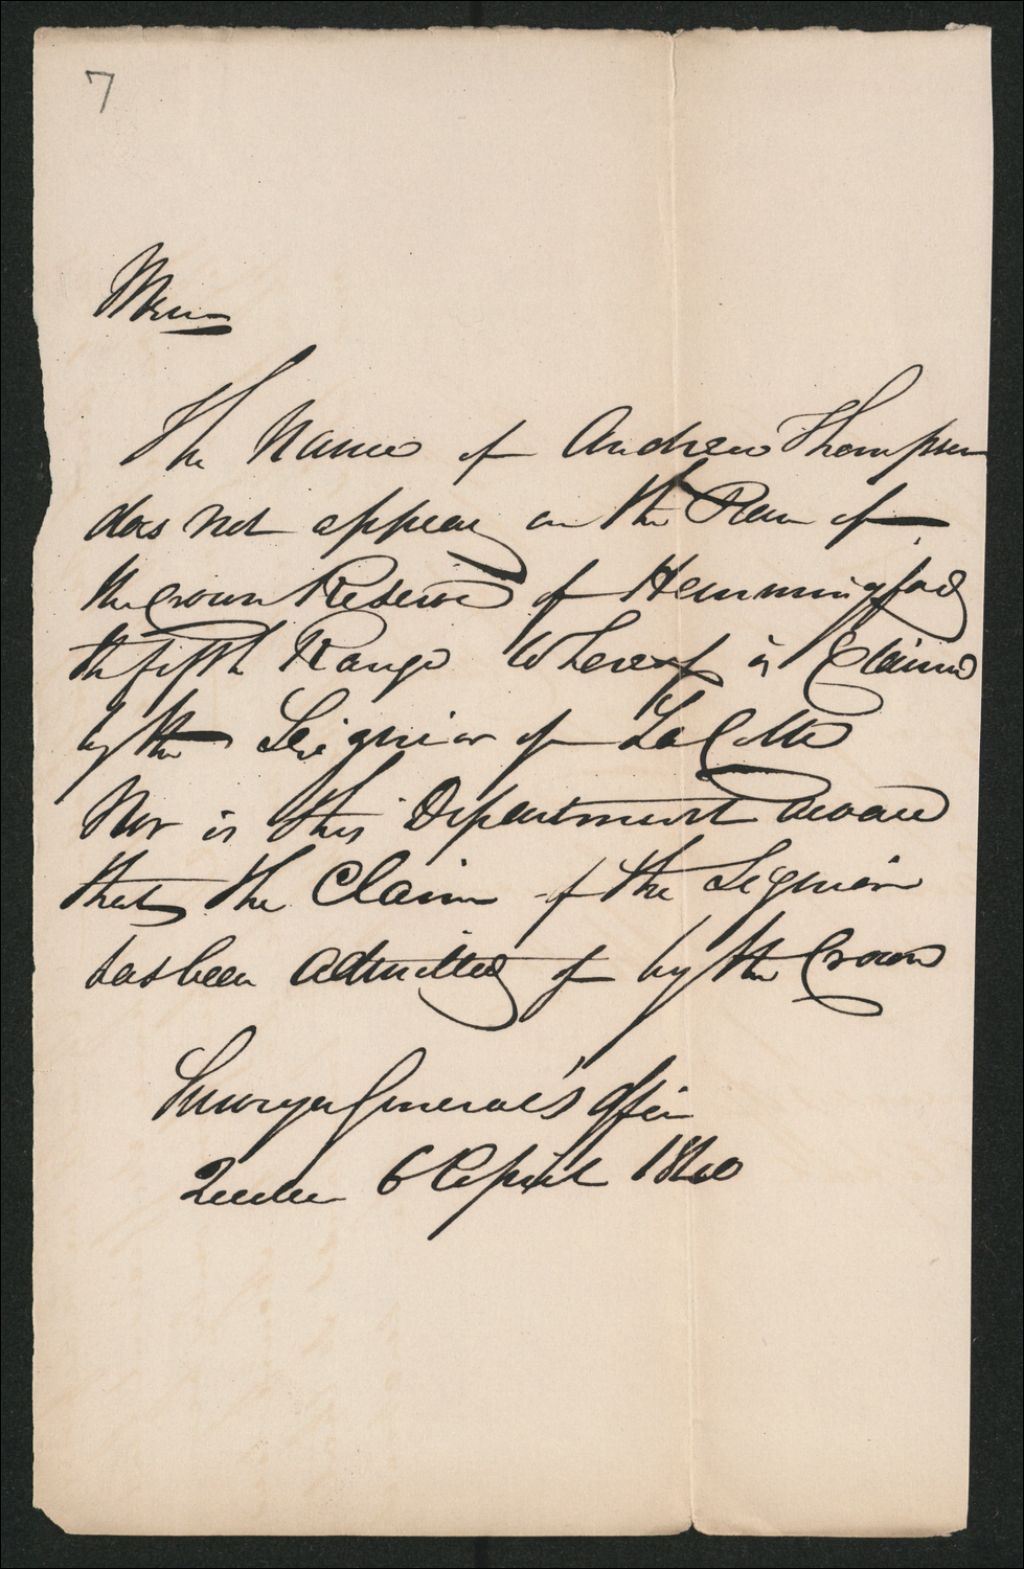 7
Mem
The Name of Andrew Thompson
does not appear on the Plan of
the Crown Reserve of Hemmingford
the fifth Range Whereof is Claimed
by the Seignior of LaColle
Nor is this Department aware
that the Claim of the Segnior
has been admitted of by the Crown
Surveyor General's Office
Quebec 6 April 1840